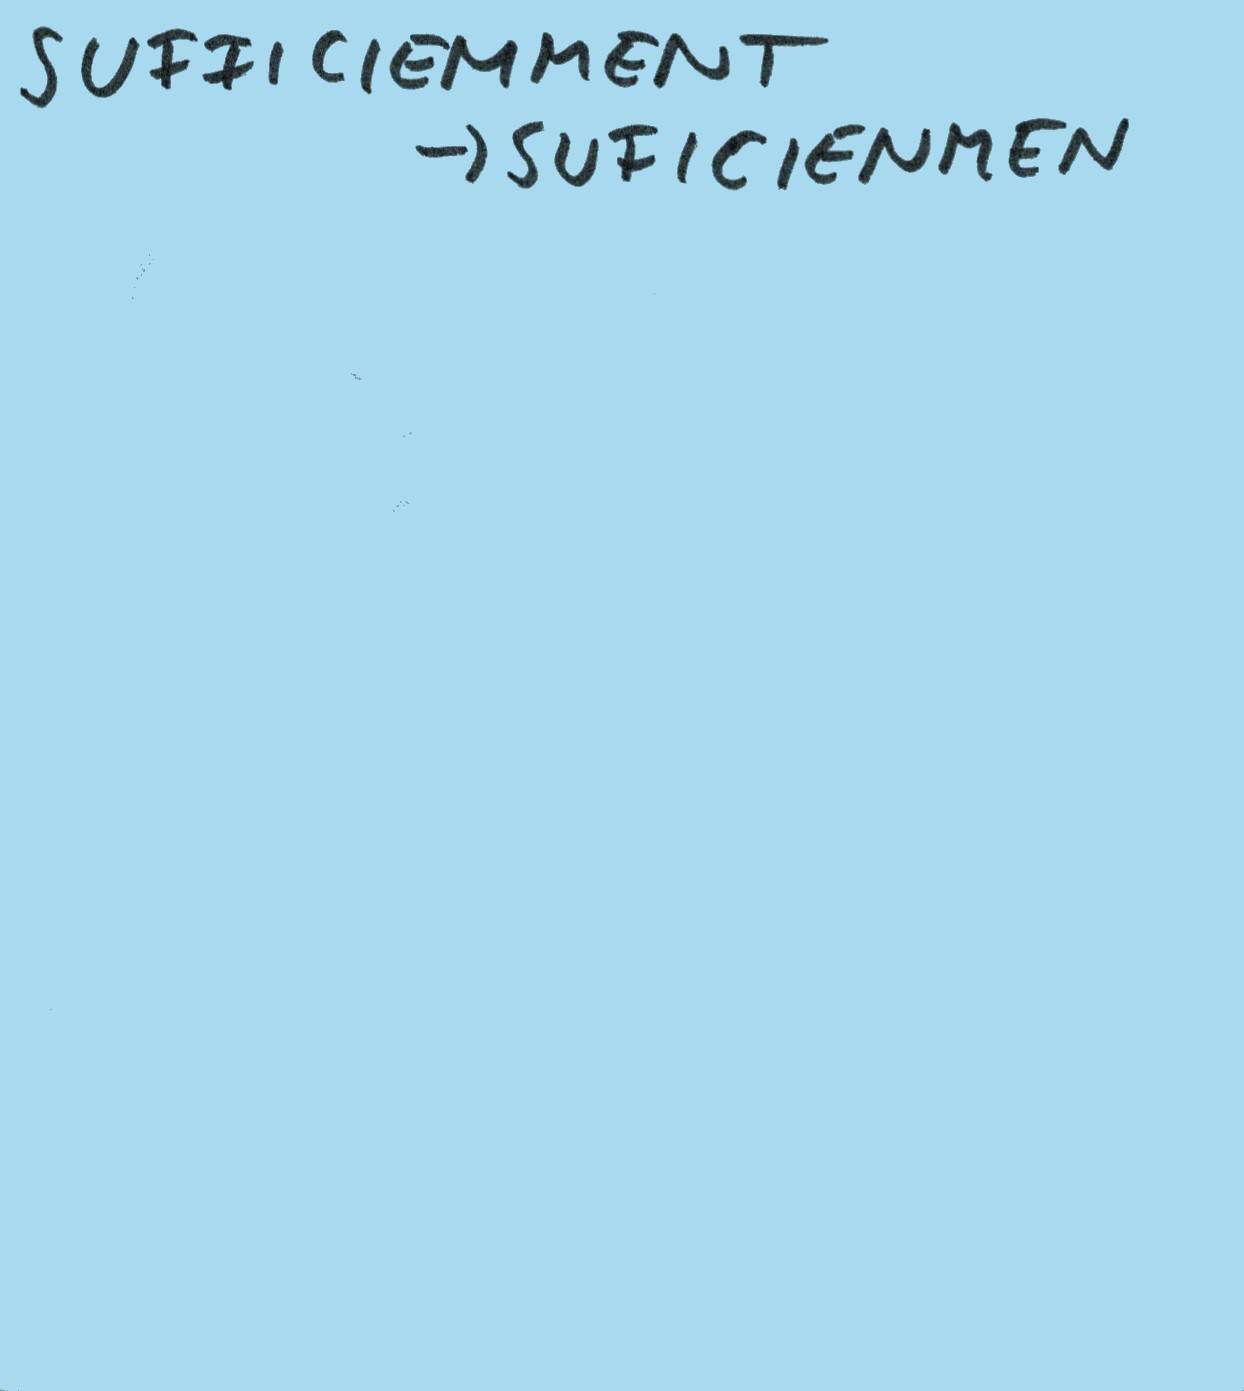 SUFFICIEMMENT
→SUFICIENMEN